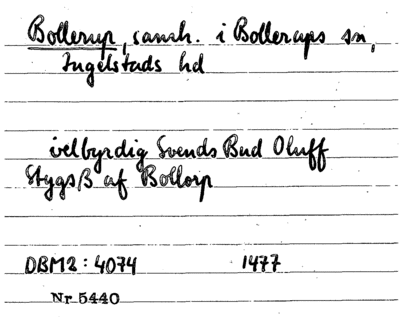 Bollerup, samh. i Bollerups sn,
Ingelstads hd
velbyrdig Svends Bud Oluff
Stygsß af Bollorp
DBM2: 4074 1477
Nr 5440